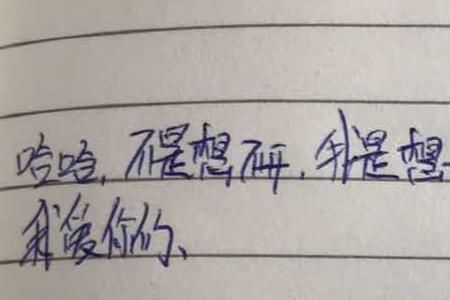 哈哈,不是想研,我是想
我爱你的、